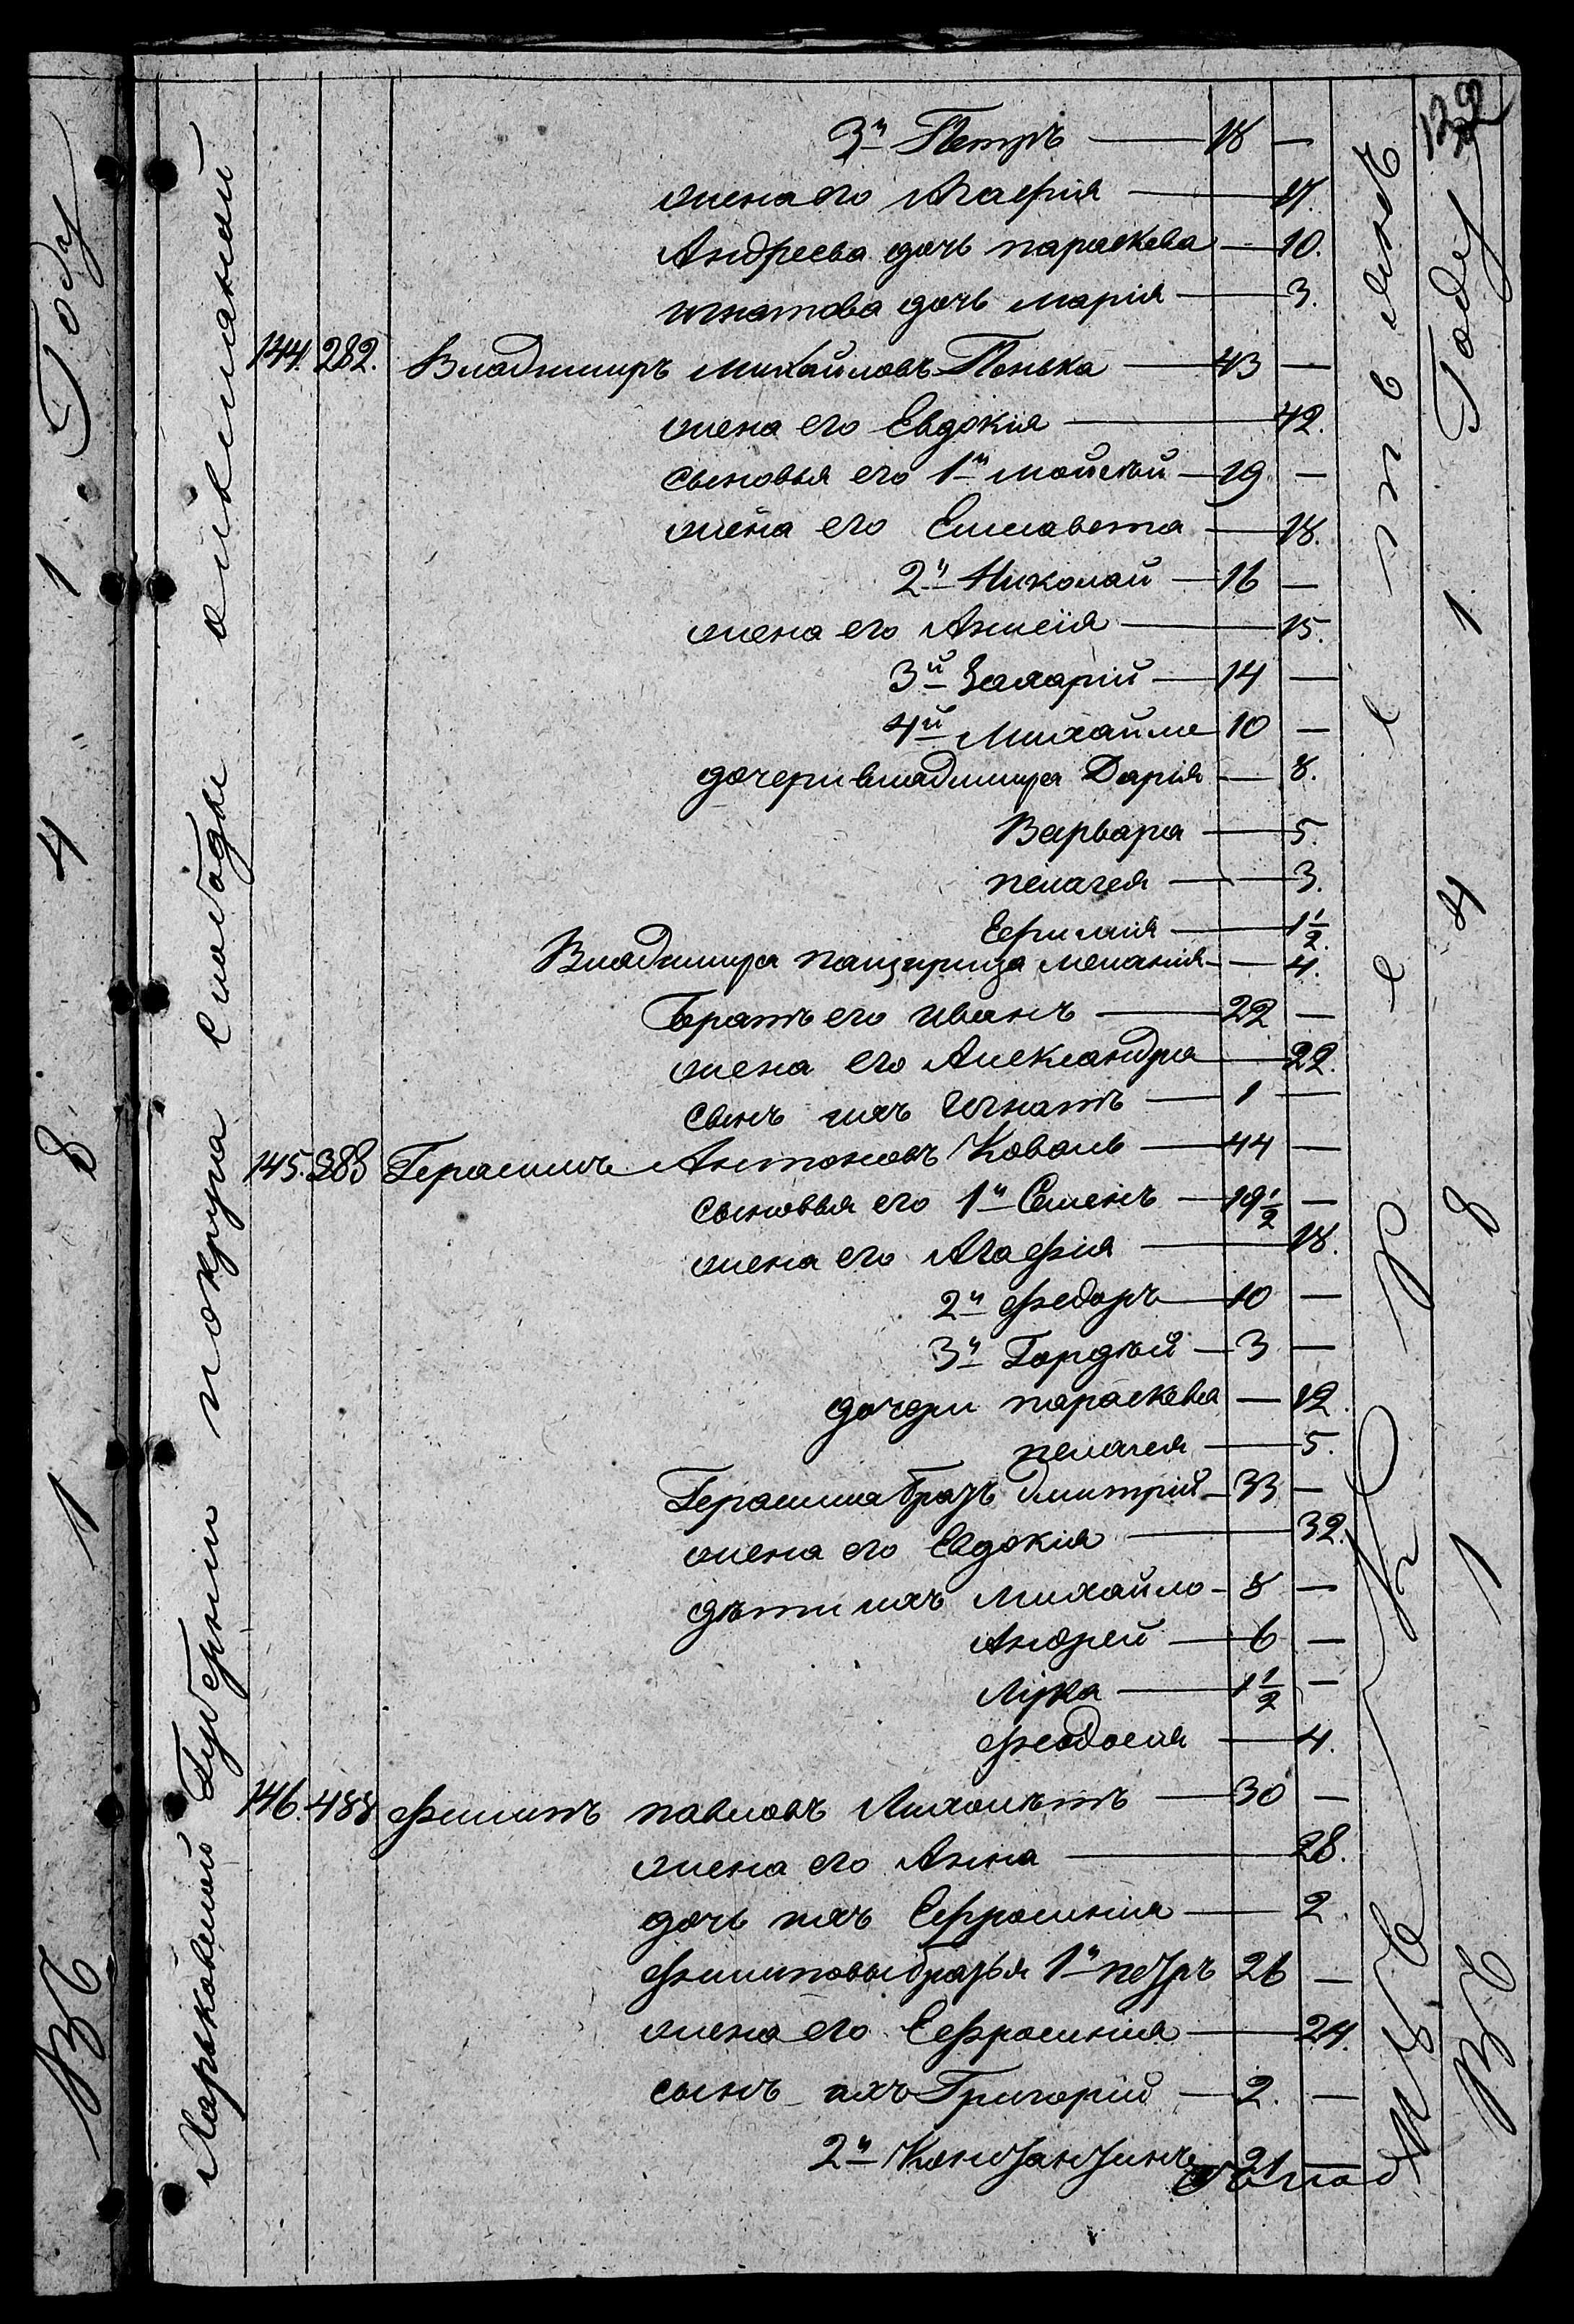 3й Петръ — 18 —
жена его Агафія — 17.
Андреева дочь параскева — 10.
игнатова дочь марія — 3.
144. 282. Владимиръ михайловъ Понька — 43 —
жена его Евдокія — 42.
сыновья его 1й мойсей — 19 —
жена его Елисавета — 18.
2й Николай — 16 —
жена его Анисія — 15.
3й Захарій — 14 —
4й Михайла 10 —
дочери владимира Дарія — 8.
Варвара — 5.
пелагея — 3.
Ефимія — 1½
Владимира падчерица меланія — 4.
Братъ его иванъ — 22 —
жена его Александра — 22.
сынъ ихъ Игнатъ — 1 —
145. 383 Герасимъ Антоновъ Коваль — 44 —
сыновья его 1й Семенъ — 19½ —
жена его Агафія — 18.
2й Федоръ — 10 —
3й Гордѣй — 3 —
дочери параскева — 12.
пелагея — 5.
Герасима братъ Дмитрій — 33 —
жена его Евдокія — 32.
дѣти ихъ михайло — 8 —
Андрей — 6 —
Лука — 1½ —
Феодосія — 4.
146. 488 Филипъ павловъ — 30 —
жена его Анна — 28.
дочь ихъ Ефросинія — 2.
Филиповы братья 1й петръ 26 —
жена его Ефросинія — 24.
сынъ ихъ Григорій — 2. —
2й Константинъ 21 —
Харьковской Губерніи покруга Слободы
Въ 1 8 4 1 Году
Въ 1 8 4 1 Году